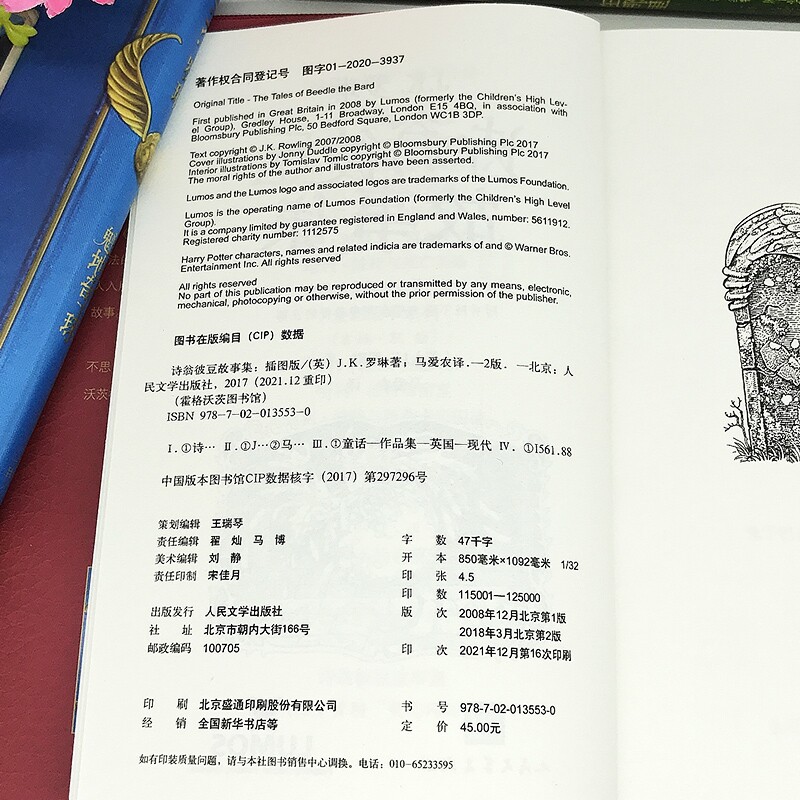 著作权合同登记号 图字01-2020-3937
Original Title - The Tales of Beedle the Bard
First published in Great Britain in 2008 by Lumos (formerly the Children's High Lev-
el Group), Gredley House, 1-11 Broadway, London E15 4BQ, in association with
Bloomsbury Publishing Plc, 50 Bedford Square, London WC1B 3DP.
Text copyright © J.K. Rowling 2007/2008
Cover illustrations by Jonny Duddle copyright © Bloomsbury Publishing Plc 2017
Interior illustrations by Tomislav Tomic copyright © Bloomsbury Publishing Plc 2017
The moral rights of the author and illustrators have been asserted.
Lumos and the Lumos logo and associated logos are trademarks of the Lumos Foundation.
Lumos is the operating name of Lumos Foundation (formerly the Children's High Level
Group).
It is a company limited by guarantee registered in England and Wales, number: 5611912.
Registered charity number: 1112575
Harry Potter characters, names and related indicia are trademarks of and © Warner Bros.
Entertainment Inc. All rights reserved
All rights reserved
No part of this publication may be reproduced or transmitted by any means, electronic,
mechanical, photocopying or otherwise, without the prior permission of the publisher.
图书在版编目(CIP)数据
诗翁彼豆故事集:插图版/(英)J.K.罗琳著;马爱农译.—2版. —北京:人
民文学出版社,2017(2021.12重印)
(霍格沃茨图书馆)
ISBN 978-7-02-013553-0
Ⅰ.①诗… Ⅱ.①J…②马… Ⅲ.①童话—作品集—英国—现代 Ⅳ. ①I561.88
中国版本图书馆CIP数据核字(2017)第297296号
策划编辑 王瑞琴
责任编辑 翟灿 马博
美术编辑 刘静
责任印制 宋佳月
出版发行 人民文学出版社
社址 北京市朝内大街166号
邮政编码 100705
印刷 北京盛通印刷股份有限公司
经销 全国新华书店等
字数 47千字
开本 850毫米×1092毫米 1/32
印张 4.5
印数 115001—125000
版次 2008年12月北京第1版
2018年3月北京第2版
印次 2021年12月第16次印刷
书号 978-7-02-013553-0
定价 45.00元
如有印装质量问题,请与本社图书销售中心调换。电话:010-65233595
故事
不思
沃茨